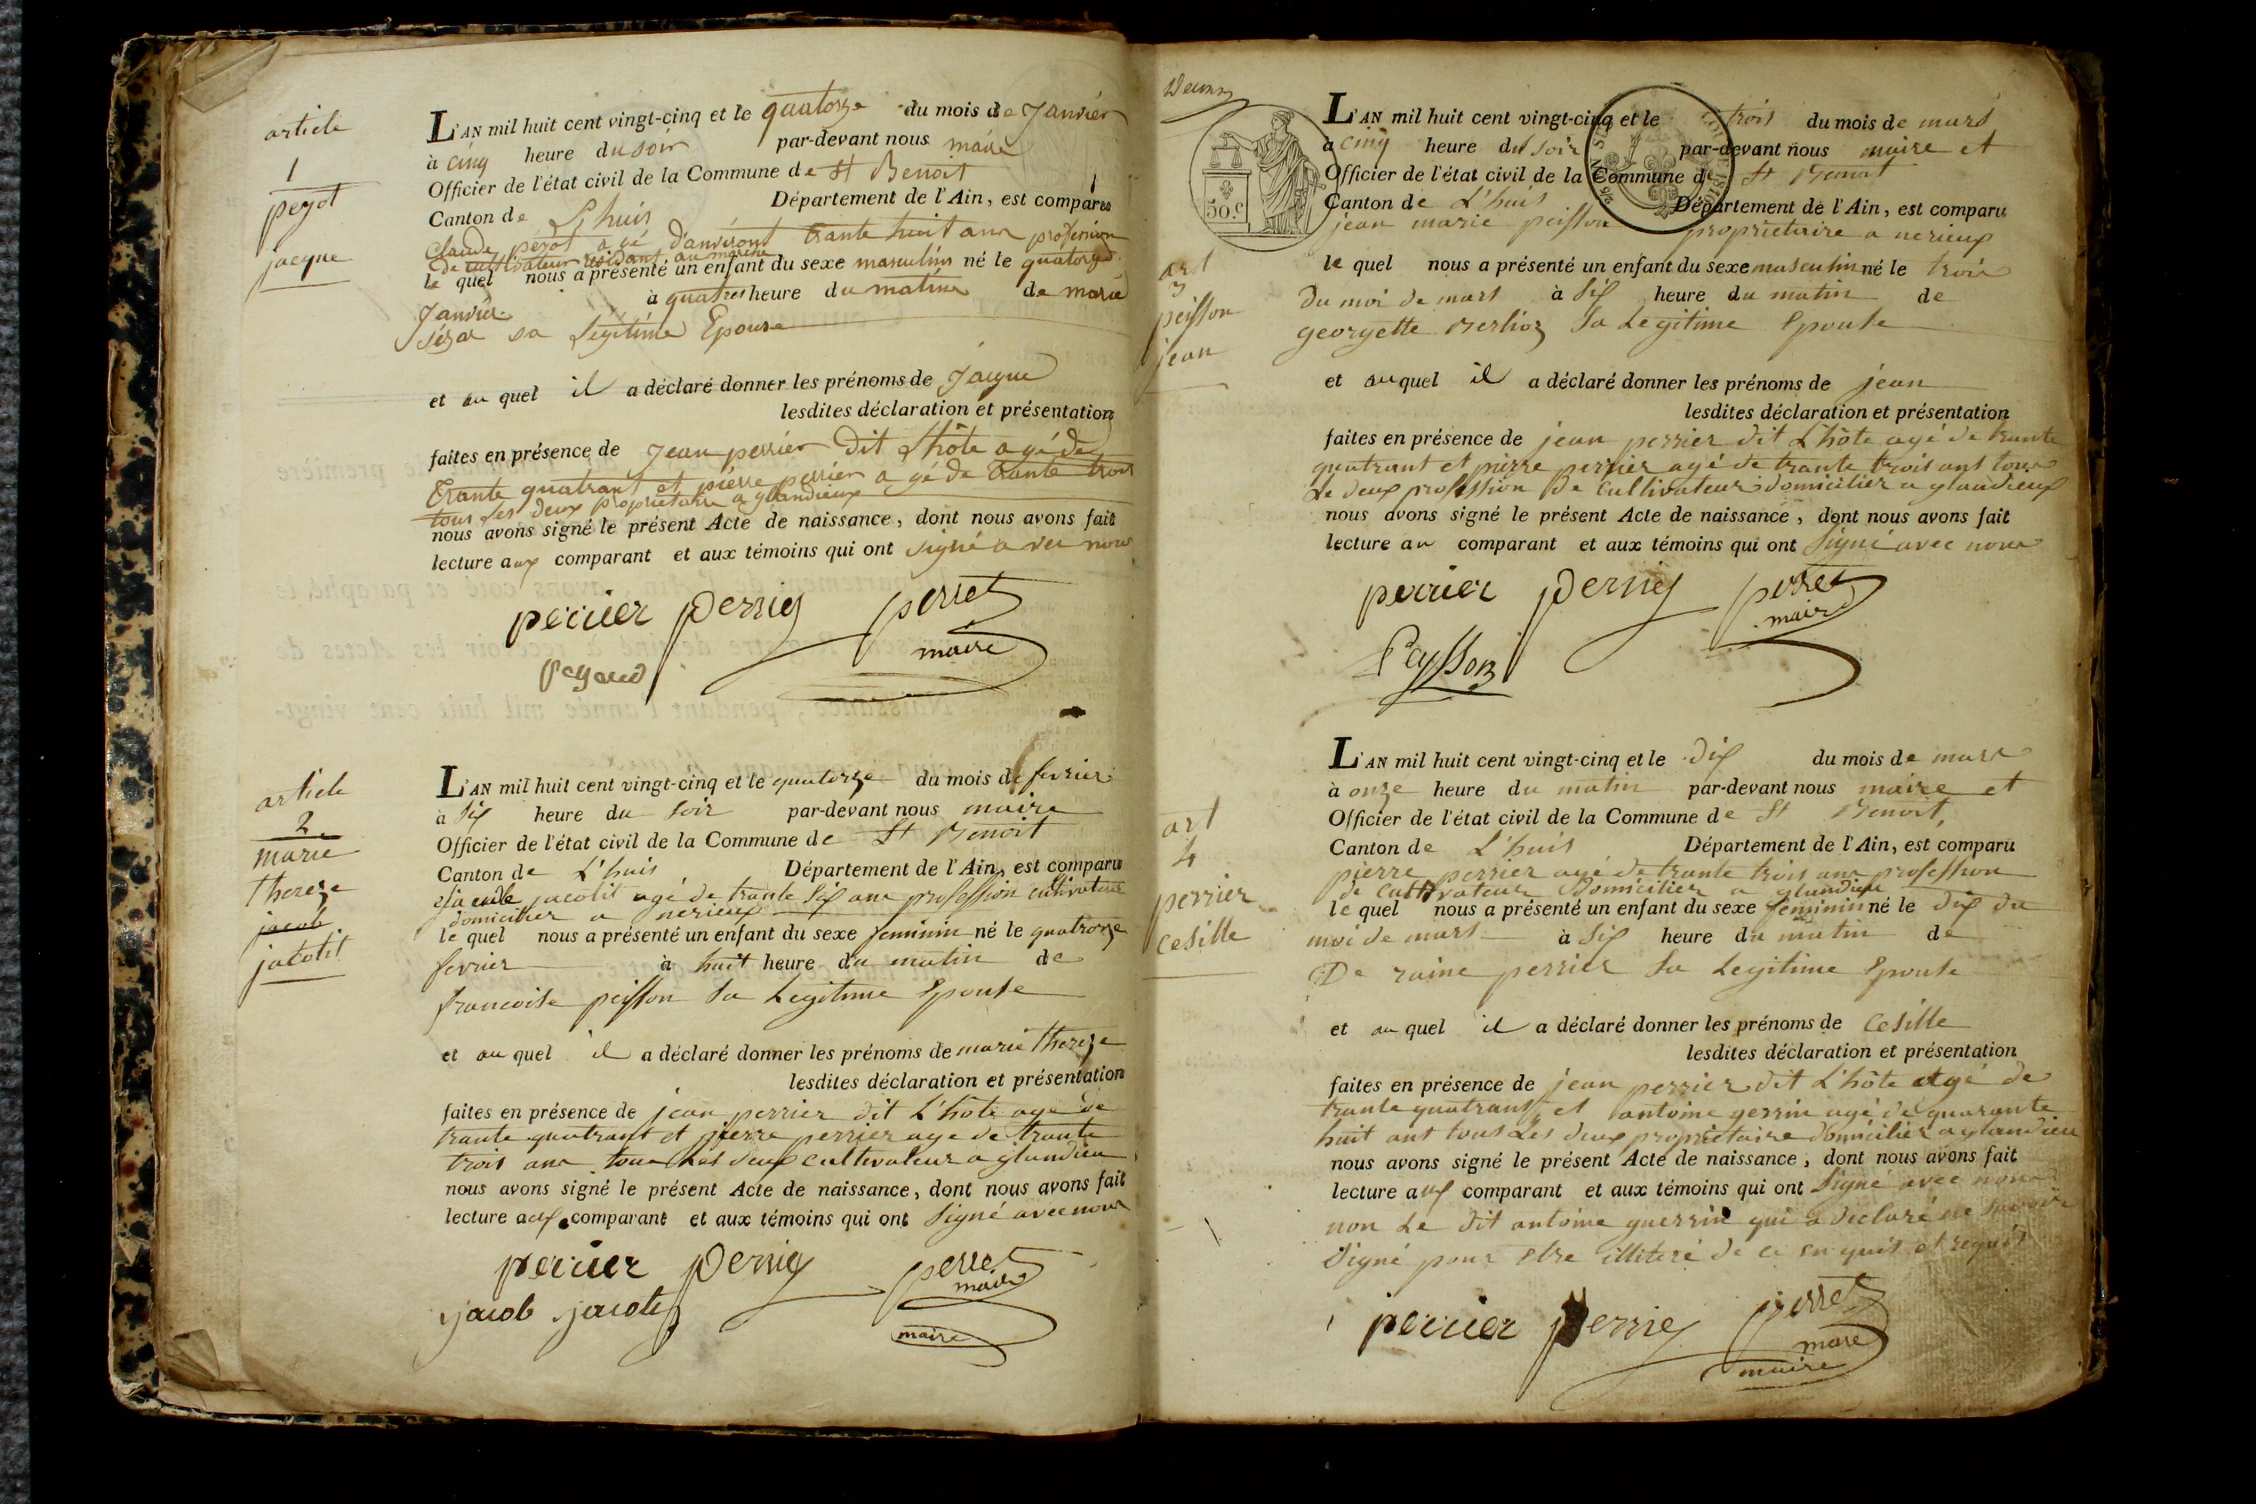 article
1
peyot
jacque
L'AN mil huit cent vingt-cinq et le quatorze du mois de Janvier
à cinq heure du soir par-devant nous maire
Officier de l'état civil de la Commune de St Benoit
Canton de Lhuis Département de l'Ain, est comparu
Claude peyot agé d'anviront trante huit ans profession
de cultivateur résidant au marche
le quel nous a présenté un enfant du sexe masculins né le quatorze
Janvier à quatres heure du matins de marie
sa Légitime Epouse
et au quel il a déclaré donner les prénoms de Jacque
lesdites déclaration et présentation
faites en présence de Jean perrier Dit L'hôte agé de
trante quatrant et pierre perrier agé de trante trois
tous les deux propriétaire a glandieux
nous avons signé le présent Acte de naissance, dont nous avons fait
lecture aux comparant et aux témoins qui ont signé avec nous
perrier perrier perret
maire
article
2
marie
thereze
jacob
jacotit
L'AN mil huit cent vingt-cinq et le quatorze du mois de fevrier
à Six heure du soir par-devant nous maire
Officier de l'état civil de la Commune de St Benoit
Canton de L'huis Département de l'Ain, est comparu
jacotit agé de trante Six ans profession cultivateur
domicilier a nerieux
le quel nous a présenté un enfant du sexe feminin né le quatrorze
fevrier à huit heure du matin de
francoise peisson Sa Legitime Epouse
et au quel il a déclaré donner les prénoms de marie thereze
lesdites déclaration et présentation
faites en présence de jean perrier dit L'hôte agé de
trante quatrant et pierre perrier age de trante
trois ans tous Les deux cultivateur a glandieu
nous avons signé le présent Acte de naissance, dont nous avons fait
lecture aux comparant et aux témoins qui ont Signé avec nous
perrier perrier perret
maire
jacob jacotit
maire
50.c
L'AN mil huit cent vingt-cinq et le trois du mois de mars
à cinq heure du soir par-devant nous maire et
Officier de l'état civil de la Commune de St Benoit
Canton de L'huis Département de l'Ain, est comparu
jean marie peisson proprietaire a nerieux
art
3
peisson
jean
le quel nous a présenté un enfant du sexe masculin né le trois
du moi de mars à Six heure du matin de
georgette Berlioz Sa Legitime Epouse
et auquel il a déclaré donner les prénoms de jean
lesdites déclaration et présentation
faites en présence de jean perrier dit L'hôte agé de trante
quatrant et pierre perrier agé de trante trois ans tous
Le deux profession De cultivateur domicilier a glandieux
nous avons signé le présent Acte de naissance, dont nous avons fait
lecture au comparant et aux témoins qui ont Signé avec nous
perrier perrier perret
maire
Peysson
art
4
perrier
cesille
L'AN mil huit cent vingt-cinq et le dix du mois de mars
à onze heure du matin par-devant nous maire et
Officier de l'état civil de la Commune de St Benoit
Canton de L'huis Département de l'Ain, est comparu
pierre perrier agé de trante trois ans profession
de cultivateur Domicilier a glandieu
le quel nous a présenté un enfant du sexe feminin né le dix du
moi de mars à Six heure du matin de
De raine perrier Sa Legitime Epouse
et au quel il a déclaré donner les prénoms de cesille
lesdites déclaration et présentation
faites en présence de jean perrier dit L'hôte agé de
trante quatrans et antoine gerrin agé de quarante
huit ans tous Les deux proprietaire domicilier a glandieu
nous avons signé le présent Acte de naissance, dont nous avons fait
lecture aux comparant et aux témoins qui ont Signé avec nous
non Le dit antoine guerrin qui a déclaré ne savoir
Signé pour être illiteré de ce enquis et requis
perrier perrier perret
maire
maire